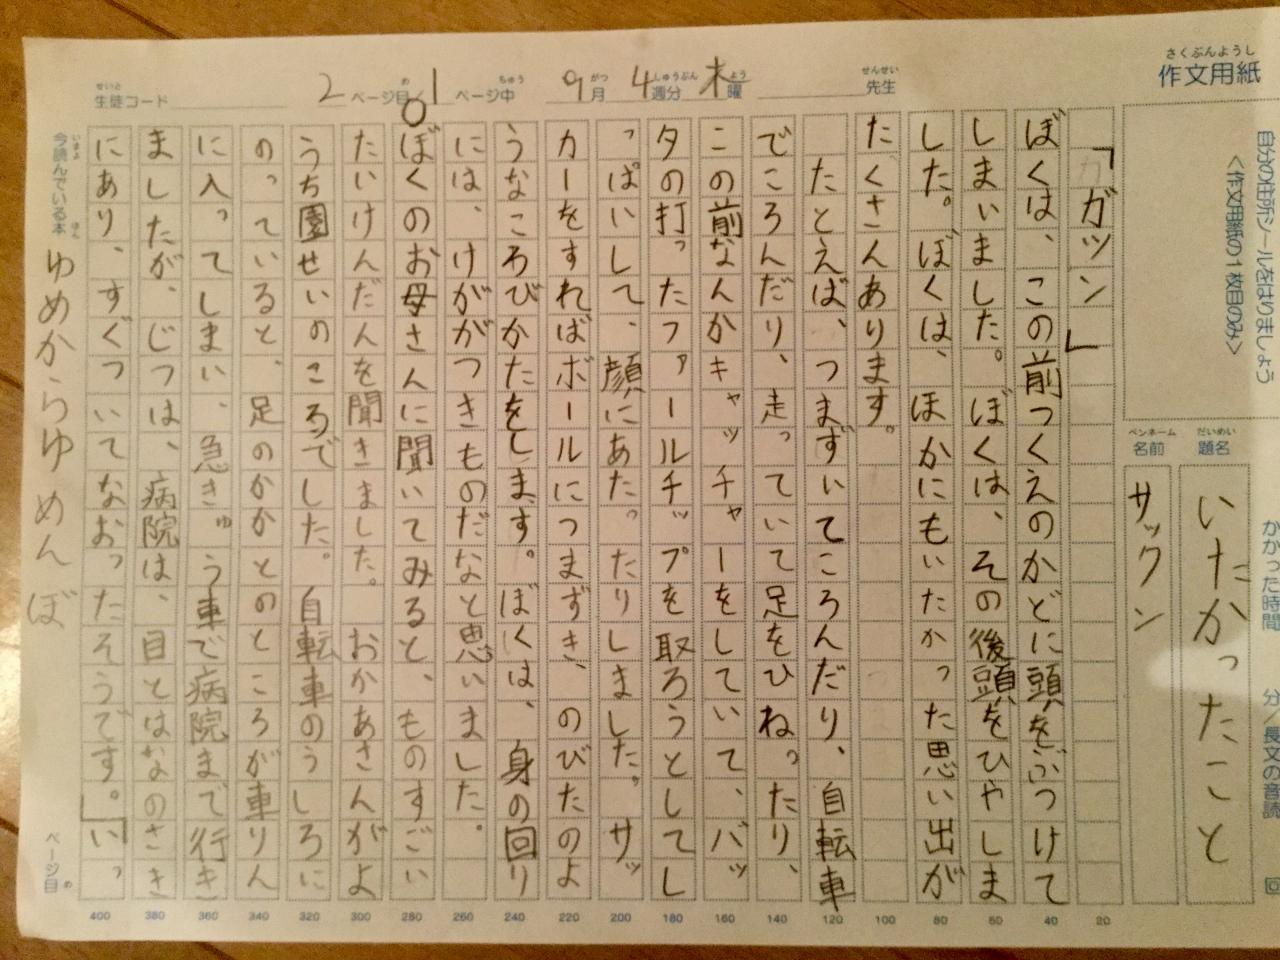 さくぶんようし
作文用紙
自分の住所シールをはりましょう
<作文用紙の1枚目のみ>
かかった時間 分/長文の音読 回
せいと
生徒コード
2ページ目/1ページ中
9月4週分木曜
せんせい
先生
だいめい
題名
いたかったこと
ペンネーム
名前
サックン
「ガツン」
ぼくは、この前つくえのかどに頭をぶつけて
しまいました。ぼくは、その後頭をひやしま
した。ぼくは、ほかにもいたかった思い出が
たくさんあります。
たとえば、つまずいてころんだり、自転車
でころんだり、走っていて足をひねったり、
この前なんかキャッチャーをしていて、バッ
タの打ったファールチップを取ろうとしてし
っぱいして、顔にあたったりしました。サッ
カーをすればボールにつまずき、のびたのよ
うなころびかたをします。ぼくは、身の回り
には、けががつきものだなと思いました。
ぼくのお母さんに聞いてみると、ものすごい
たいけんだんを聞きました。おかあさんがよ
うち園せいのころでした。自転車のうしろに
のっていると、足のかかとのところが車りん
に入ってしまい、急きゅう車で病院まで行き
ましたが、じつは、病院は、目とはなのさき
にあり、すぐついてなおったそうです。」いっ
20 40 60 80 100 120 140 160 180 200 220 240 260 280 300 320 340 360 380 400
いまよ ほん
今読んでいる本
ゆめからゆめんぼ
ページ目